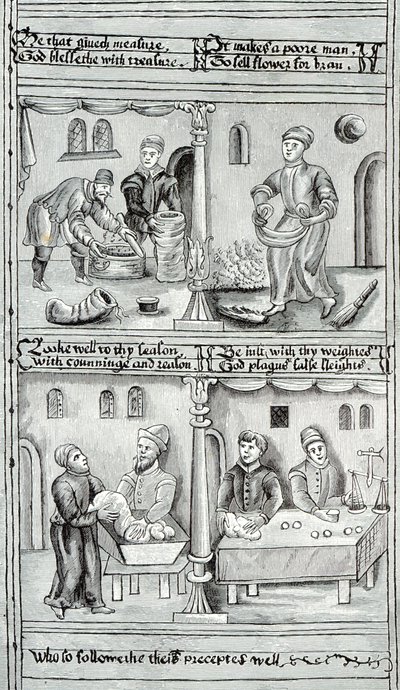 He that giueth measure,
God blessethe with treasure.
It makes a poore man,
To sell flower for bran.
Looke well to thy season,
With counninge and reason.
Be iust with thy weightes
God plagus false sleights.
Who so followethe theis preceptes well